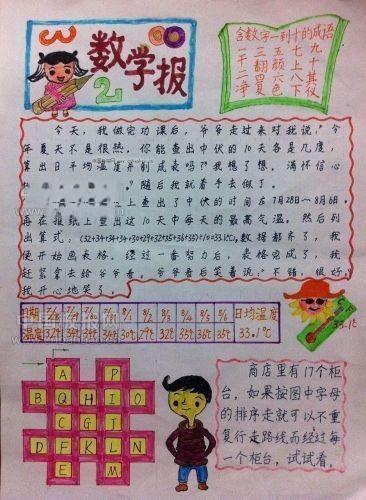 数学报
含数字一到十的成语
一干二净
三翻四复
五颜六色
七上八下
九
十其仪
今天，我做完功课后，爷爷走过来对我说："今
年夏天不是很热，你能查出中伏的10天各是几度，
算出日平均温度并制成表吗？"我想了想，满怀信心
随后我就着手去做了。
上查出了中伏的时间在7月28日～8月6日
再在报纸上查出这10天中每天的最高气温。然后列
出算式，(32+34+34+34+30+29+32+35+36+35)÷10=33.1(℃),数据都齐了，我
便开始画表格。经过一番努力后，表格完成了，我
赶紧拿去给爷爷看，爷爷看后笑着说："不错，很好"
我开心地笑了。
日期 7/28 7/29 7/30 7/31 8/1 8/2 8/3 8/4 8/5 8/6 日均温度
温度 32℃ 34℃ 34℃ 34℃ 30℃ 29℃ 32℃ 35℃ 36℃ 35℃ 33.1℃
33.1℃
A P
B Q H I O
C G J
D F K L N
E M
商店里有17个柜
台，如果按图中字母
的排序走就可以不重
复行走路线而经过每
一个柜台，试试看。